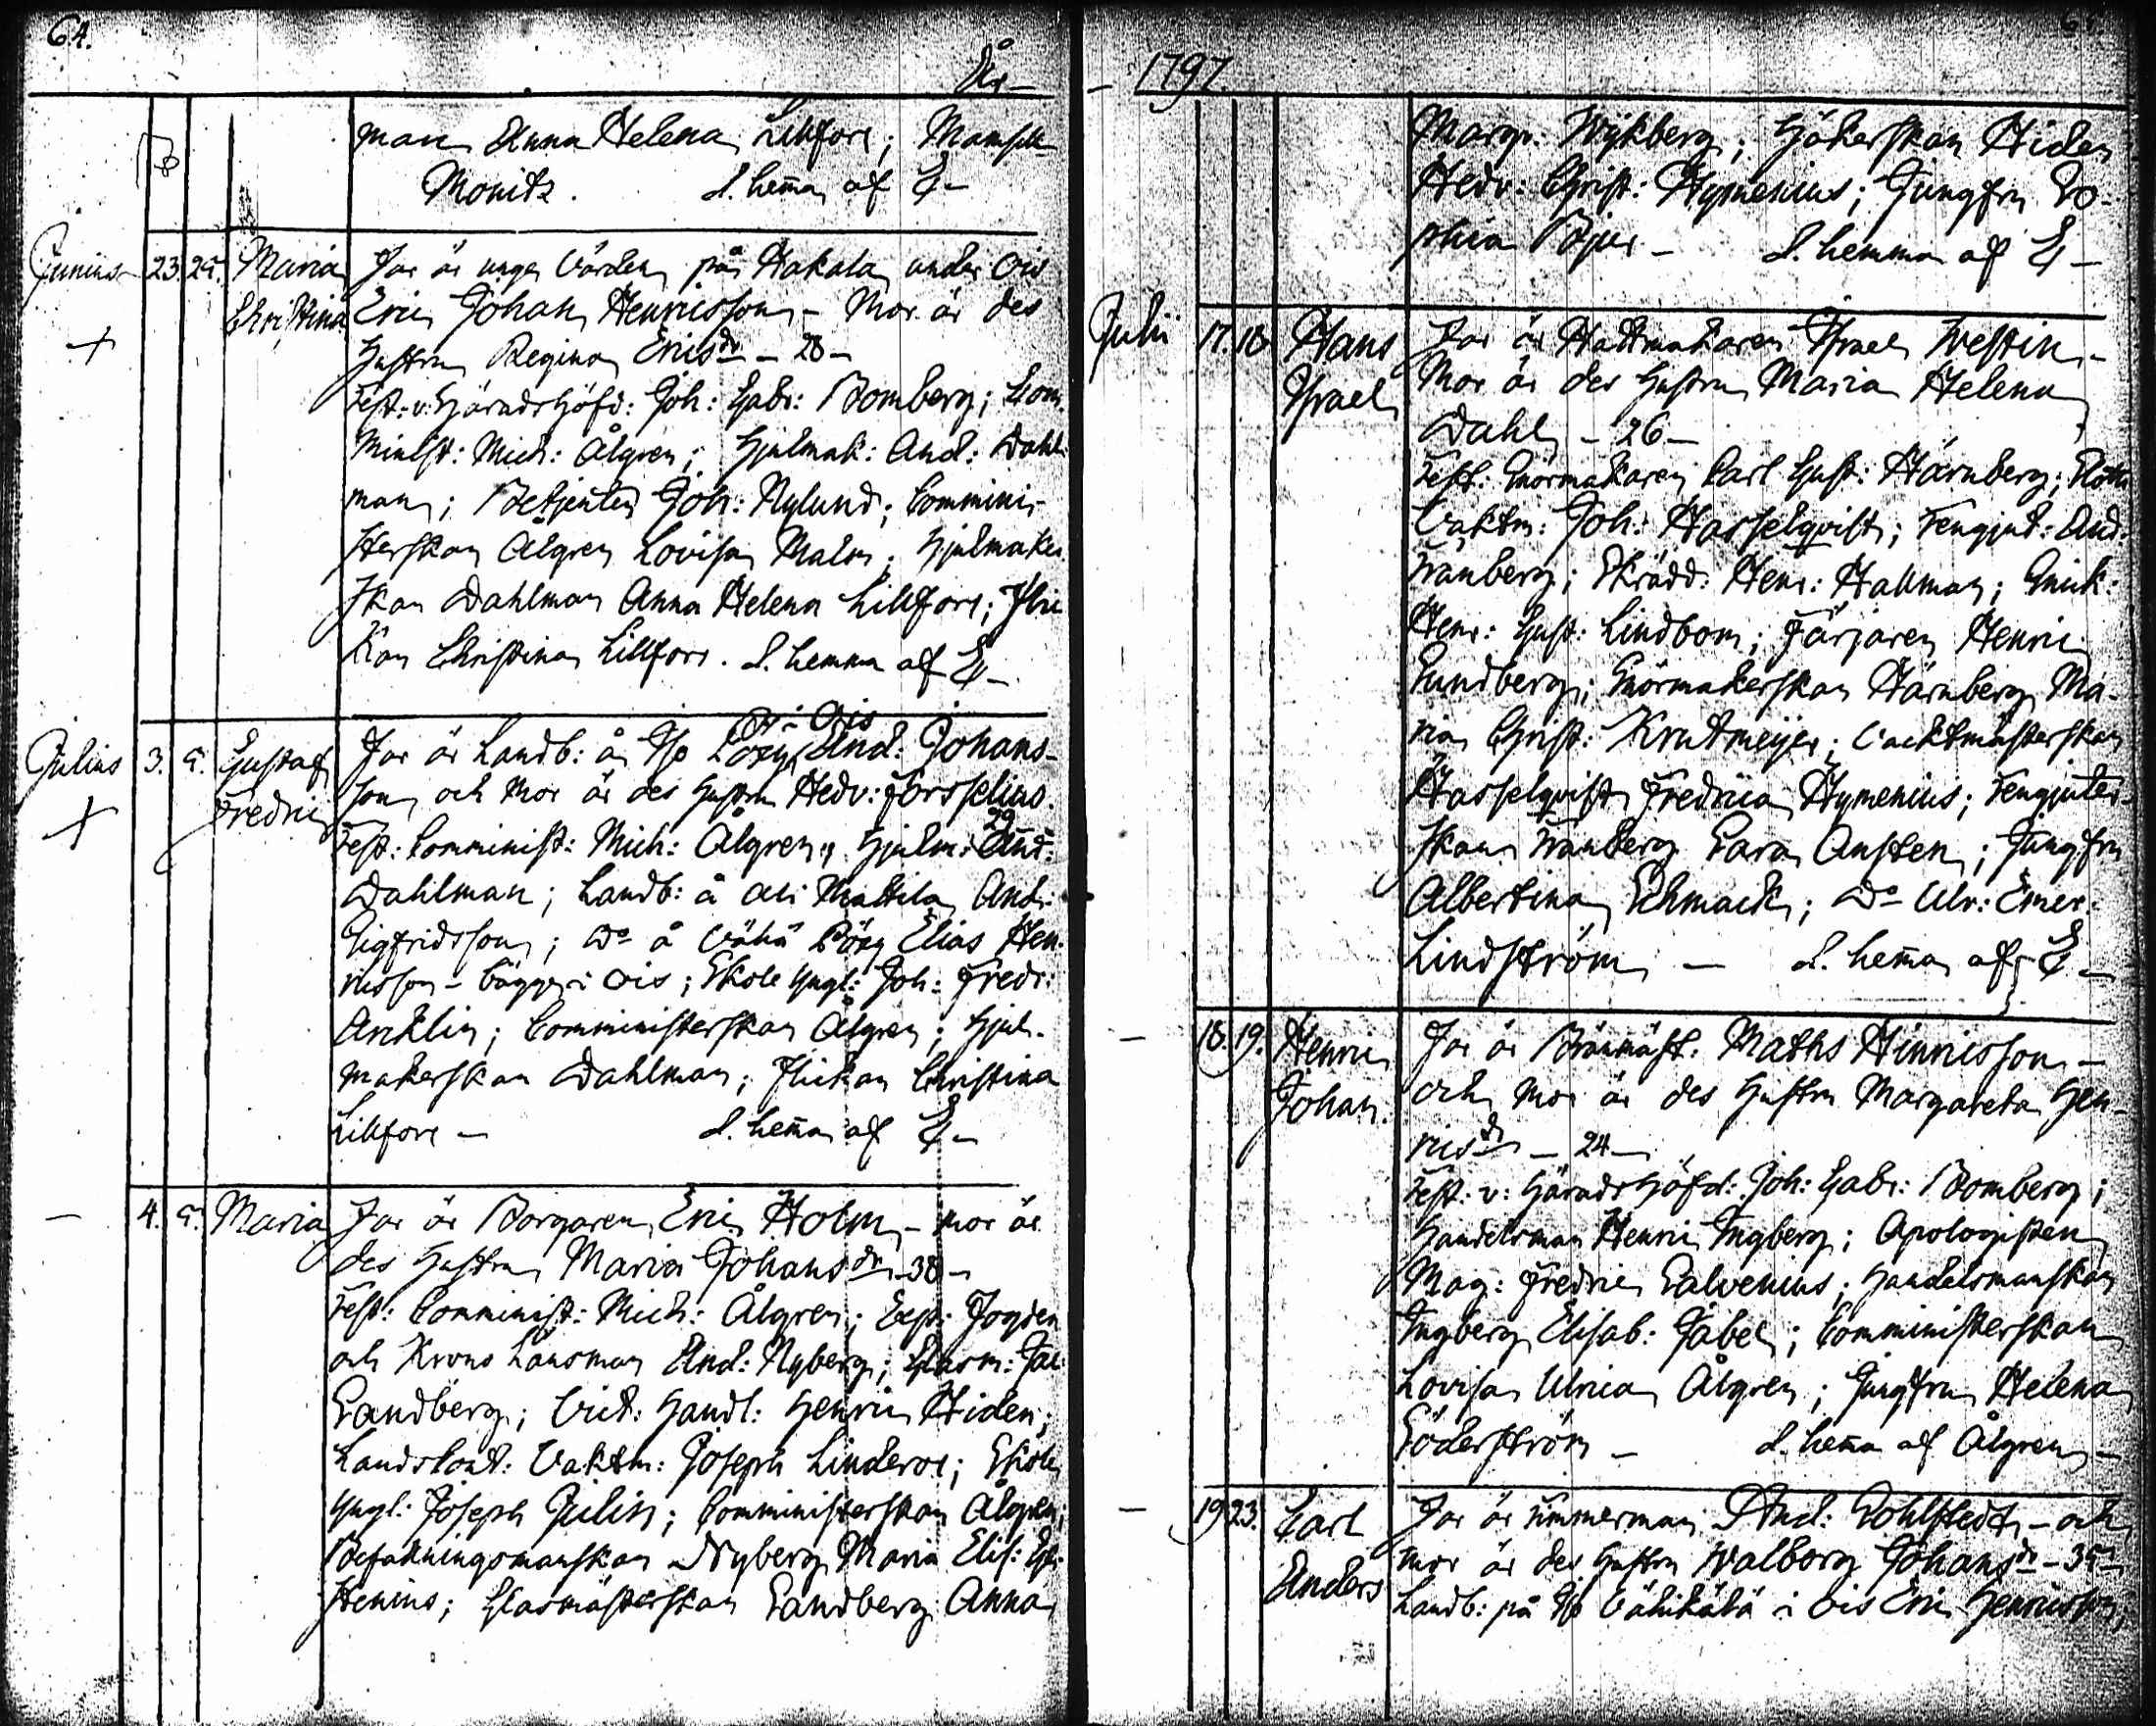 64.
År
man Anna Helena Lillfors; Mamsell
Monitz. d. hema af E-
Junius 23. 25. Maria Far är unge Värden på Hakala under Ois
Christina Eric Johan Henricsson - Mor är des
+ hustru Regina Ericsdr - 28 -
Test: v: Häradshöfd: Joh: Gabr: Bomberg; Com-
minist: Mich: Ålgren; Hjulmak: And: Dahl-
man; Betjenten Joh: Nylund; Comminis-
terskan Ålgren Lovisa Malm; Hjulmaker-
skan Dahlman Anna Helena Lillfors; Flic-
kan Christina Lillfors. d. hemma af E-
Julius 3. 5. Gustaf Far är Landb: å And: Johans-
i Ois
+ Fredric son och Mor är des hustru Hedv: Forsselius.
29
Test: Comminist: Mich: Ålgren; Hjulm: And:
Dahlman; Landb: å Ali Mattila And:
Sigfridsson; Do å Vähä Pöxy Elias Hen-
ricsson - bägge i Ois; Skole Yngl: Joh: Fredr:
Anklin; Comministerskan Ålgren; Hjul-
makerskan Dahlman; Flickan Christina
Lillfors - d. hema af E-
- 4. 5. Maria Far är Borgaren Eric Holm - Mor är
des hustru Maria Johansdr - 38 -
Test: Comminist: Mich: Ålgren; Exp: Fogden
och Krono Länsman And: Nyberg; Glasm: Jac:
Sandberg; Vict: Handl: Henric Hiden;
Landscont: Vaktm: Joseph Linderos; Skole
Yngl: Joseph Julin; Comministerskan Ålgren;
Befallningsmanskan Nyberg Maria Elis:
stenius; Glasmästerskan Sandberg Anna
1797.
Margr: Wykberg; Hökerskan Hiden
Hedv: Christ: Hymenius; Jungfru So-
phia Bjur - d. hemma af E-
Julii 17. 18. Hans Far är Hattmakaren Israel Westin -
Israel Mor är des hustru Maria Helena
Dahl - 26 -
Test: Snörmakaren Carl Gust: Härnberg;
Vaktm: Joh: Hasselqvist; Tengjut: And:
Tranberg; Skrädd: Henr: Hallman; Snick:
Henr: Gust: Lindbom; Färjaren Henric
Sundberg; Snörmakerskan Härnberg Ma-
ria Christ: Krutmeijer; Vacktmästerskan
Hasselqvist Fredrica Hymenius; Tengjuter-
skan Tranberg Sara Austen; Jungfru
Albertina Schmack; Do Ulr: Emer:
Lindström - d. hema af E-
- 18. 19. Henric Far är Brännmäst: Maths Hinricsson -
Johan. och Mor är des hustru Margareta Hen-
ricsdr - 24 -
Test: v: Häradshöfd: Joh: Gabr: Bomberg;
Handelsman Henric Ingberg; Apologisten
Mag: Fredric Salvenius; Handelsmanskan
Ingberg Elisab: Fabel; Comministerskan
Lovisa Ulrica Ålgren; Jungfru Helena
Söderström - d. hema af Ålgren -
- 19. 23. Carl Far är Timmerman And: Dohlstedt - och
Anders mor är des hustru Walborg Johansdr - 35 -
Landb: på Vähikälä i Ois Eric Henricsson;